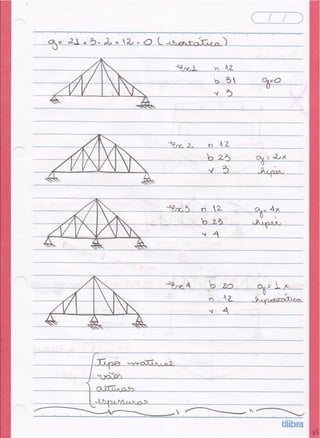 g = 21 + 3 - 2 × 12 = 0 (isostática)
Ex 1 n 12
b 21 g=0
v 3
Ex 2 n 12
b 23 g = 2x
v 3 hiper
Ex 3 n 12 g = 4x
b 23 hiper
v 4
Ex 4 b 20 g = 1x
n 12 hiperestática
v 4
Tipos
vãos
alturas
espessuras
tilibra